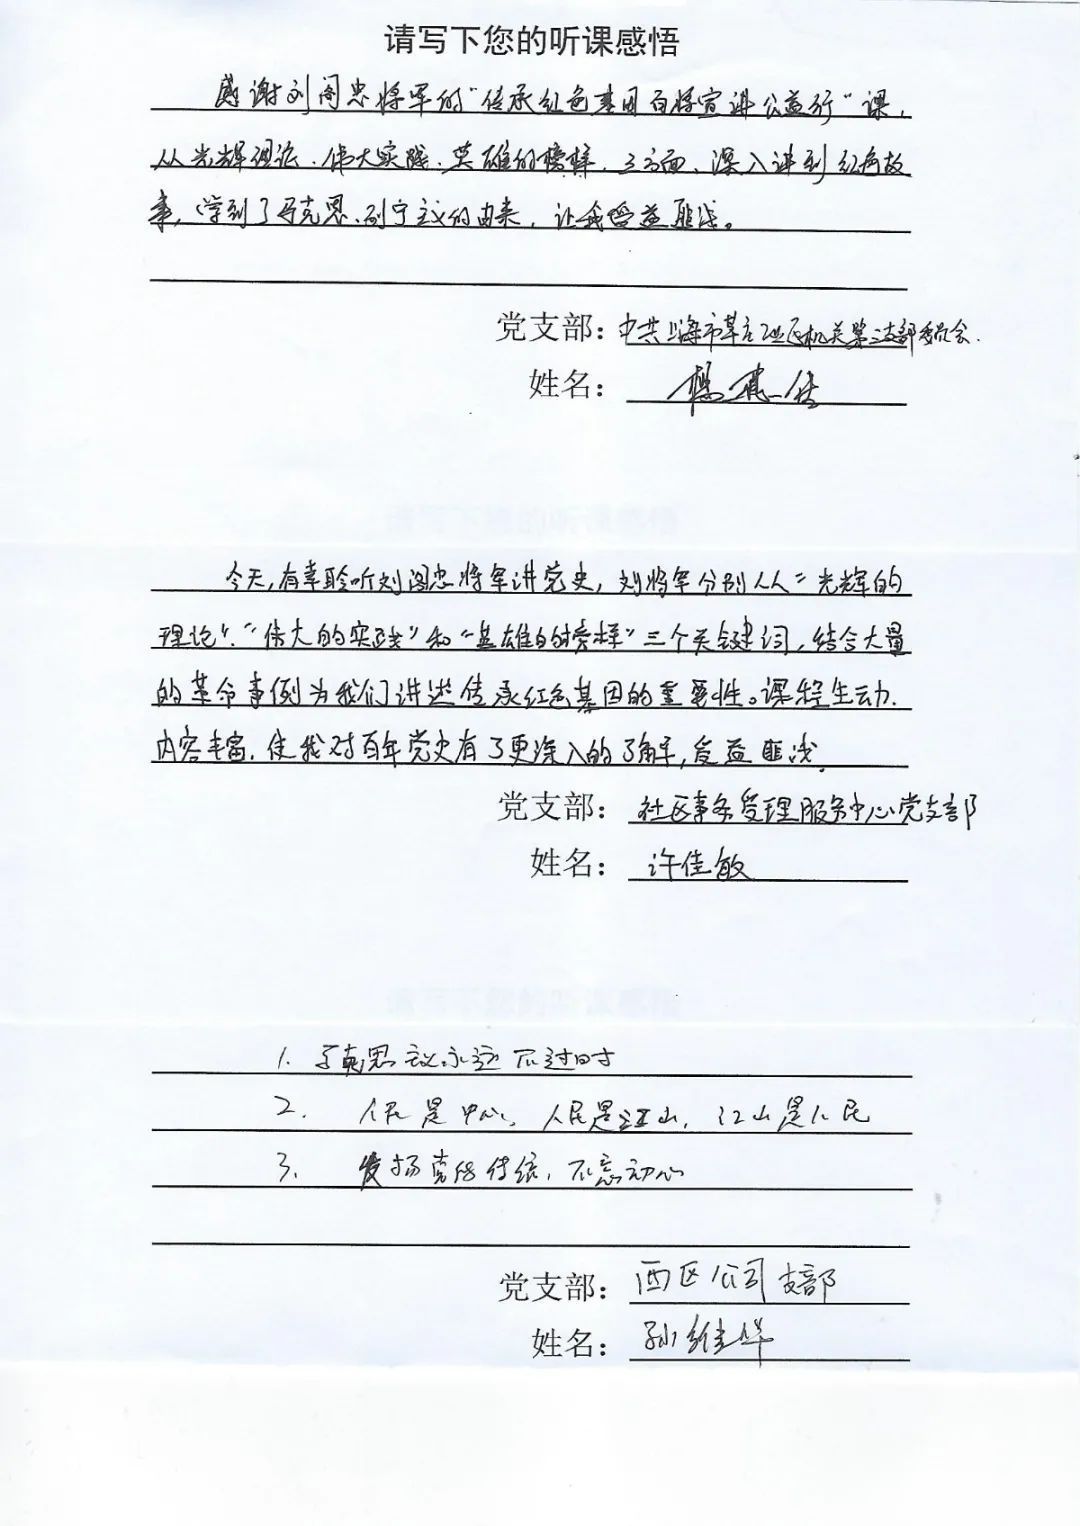 请写下您的听课感悟
感谢刘阁忠将军的“传承红色基因百将宣讲公益行”课，
从光辉理论、伟大实践、英雄的榜样，三方面、深入讲到红色故
事，学到了马克思、列宁主义的由来，让我受益匪浅。
党支部：中共上海市莘庄工业区机关第二支部委员会.
姓名：杨
今天，有幸聆听刘阁忠将军讲党史，刘将军分别从“光辉的
理论”、“伟大的实践”和“英雄的榜样”三个关键词，结合大量
的革命事例为我们讲述传承红色基因的重要性。课程生动、
内容丰富，使我对百年党史有了更深入的了解，受益匪浅.
党支部：社区事务受理服务中心党支部
姓名：许佳敏
1. 马克思主义永远不过时
2. 人民是中心，人民是江山，江山是人民
3. 发扬党的传统，不忘初心
党支部：西区公司支部
姓名：孙维华